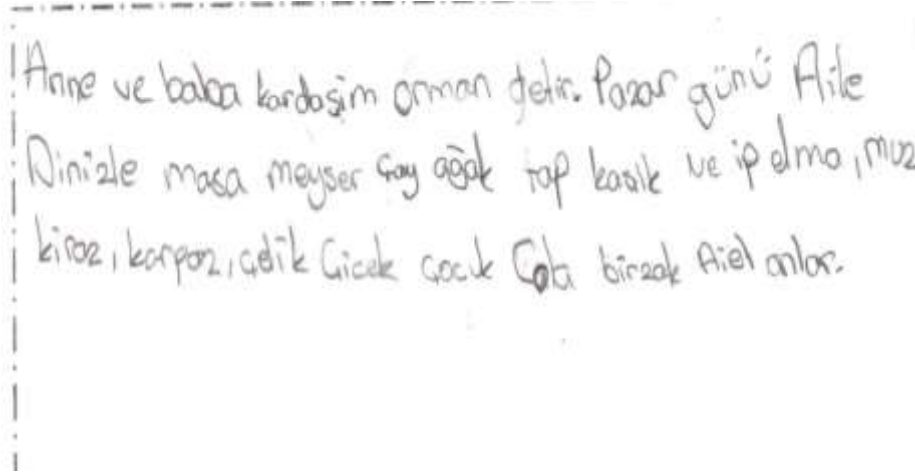 Anne ve baba kardaşim orman detir. Pazar günü Aile
Dinizle masa meyser Çay ağak tap kasik ve ip elma, muz
kiraz, karpaz, çelik Çicek çocuk Çota birzak Aiel onlar.